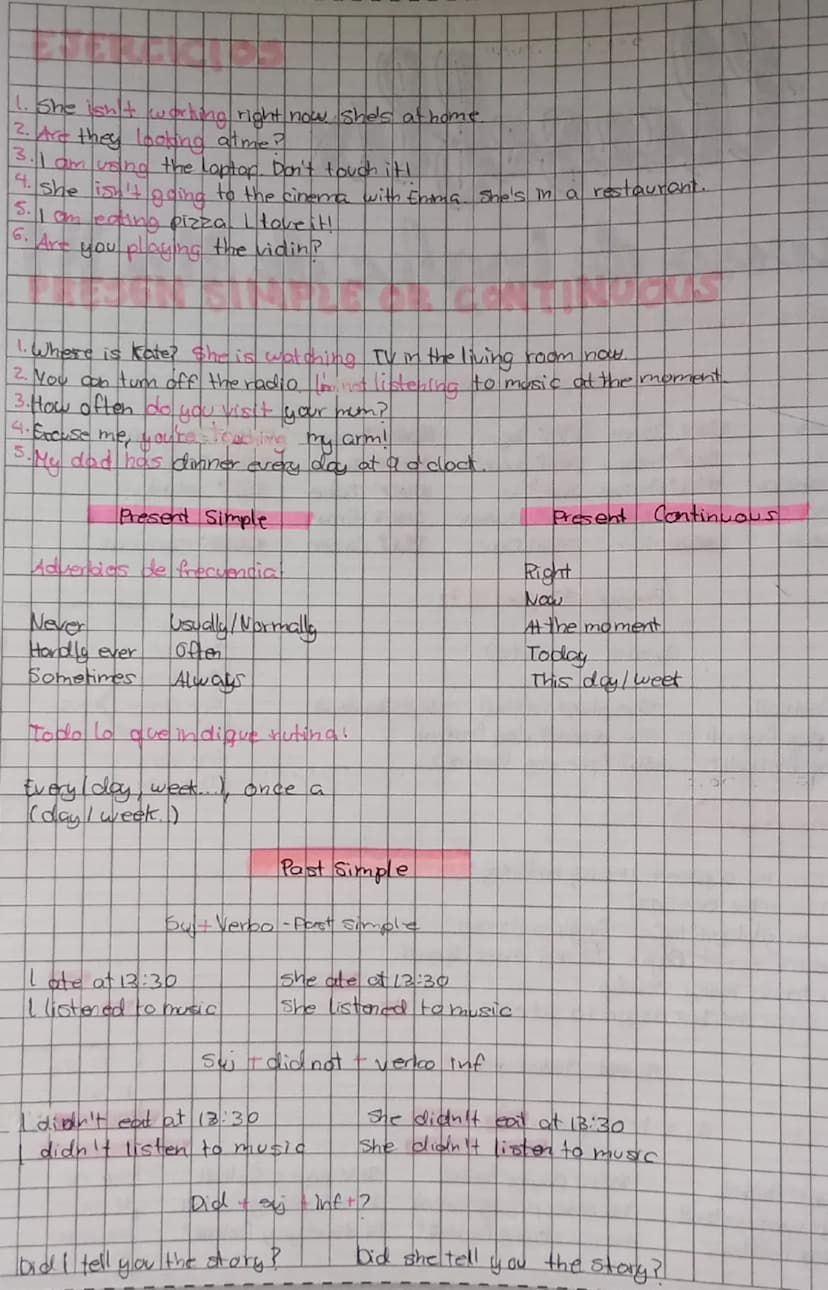 EJERCICIOS
1. She isn't working right now she's at home
2. Are they looking at me?
3. I am using the laptop. Don't touch it!
4. She isn't going to the cinema with Emma. She's in a restaurant.
5. I am eating pizza I love it!
6. Are you playing the
PRESEN SIMPLE OR CONTINUOUS
1. Where is Kate? She is watching TV in the living room now.
2. You can turn off the radio. I'm not listening to music at the moment.
3. How often do you visit your mum?
4. Excuse me, you're my arm!
5. My dad has dinner every day at 9 o'clock.
Present Simple Present Continuous
Adverbios de frecuencia: Right
Now
Never Usually/Normally At the moment
Hardly ever Often Today
Sometimes Always This day/weet
Todo lo que indique rutina:
Every (day, week...), once a
(day/week.)
Past Simple
Suj + Verbo - Past simple
I ate at 13:30 She ate at 13:30
I listened to music She listened to music
Suj + did not + verbo inf
I didn't eat at 13:30 She didn't eat at 13:30
I didn't listen to music She didn't listen to music
Did + suj + inf + ?
Did I tell you the story? Did she tell you the story?